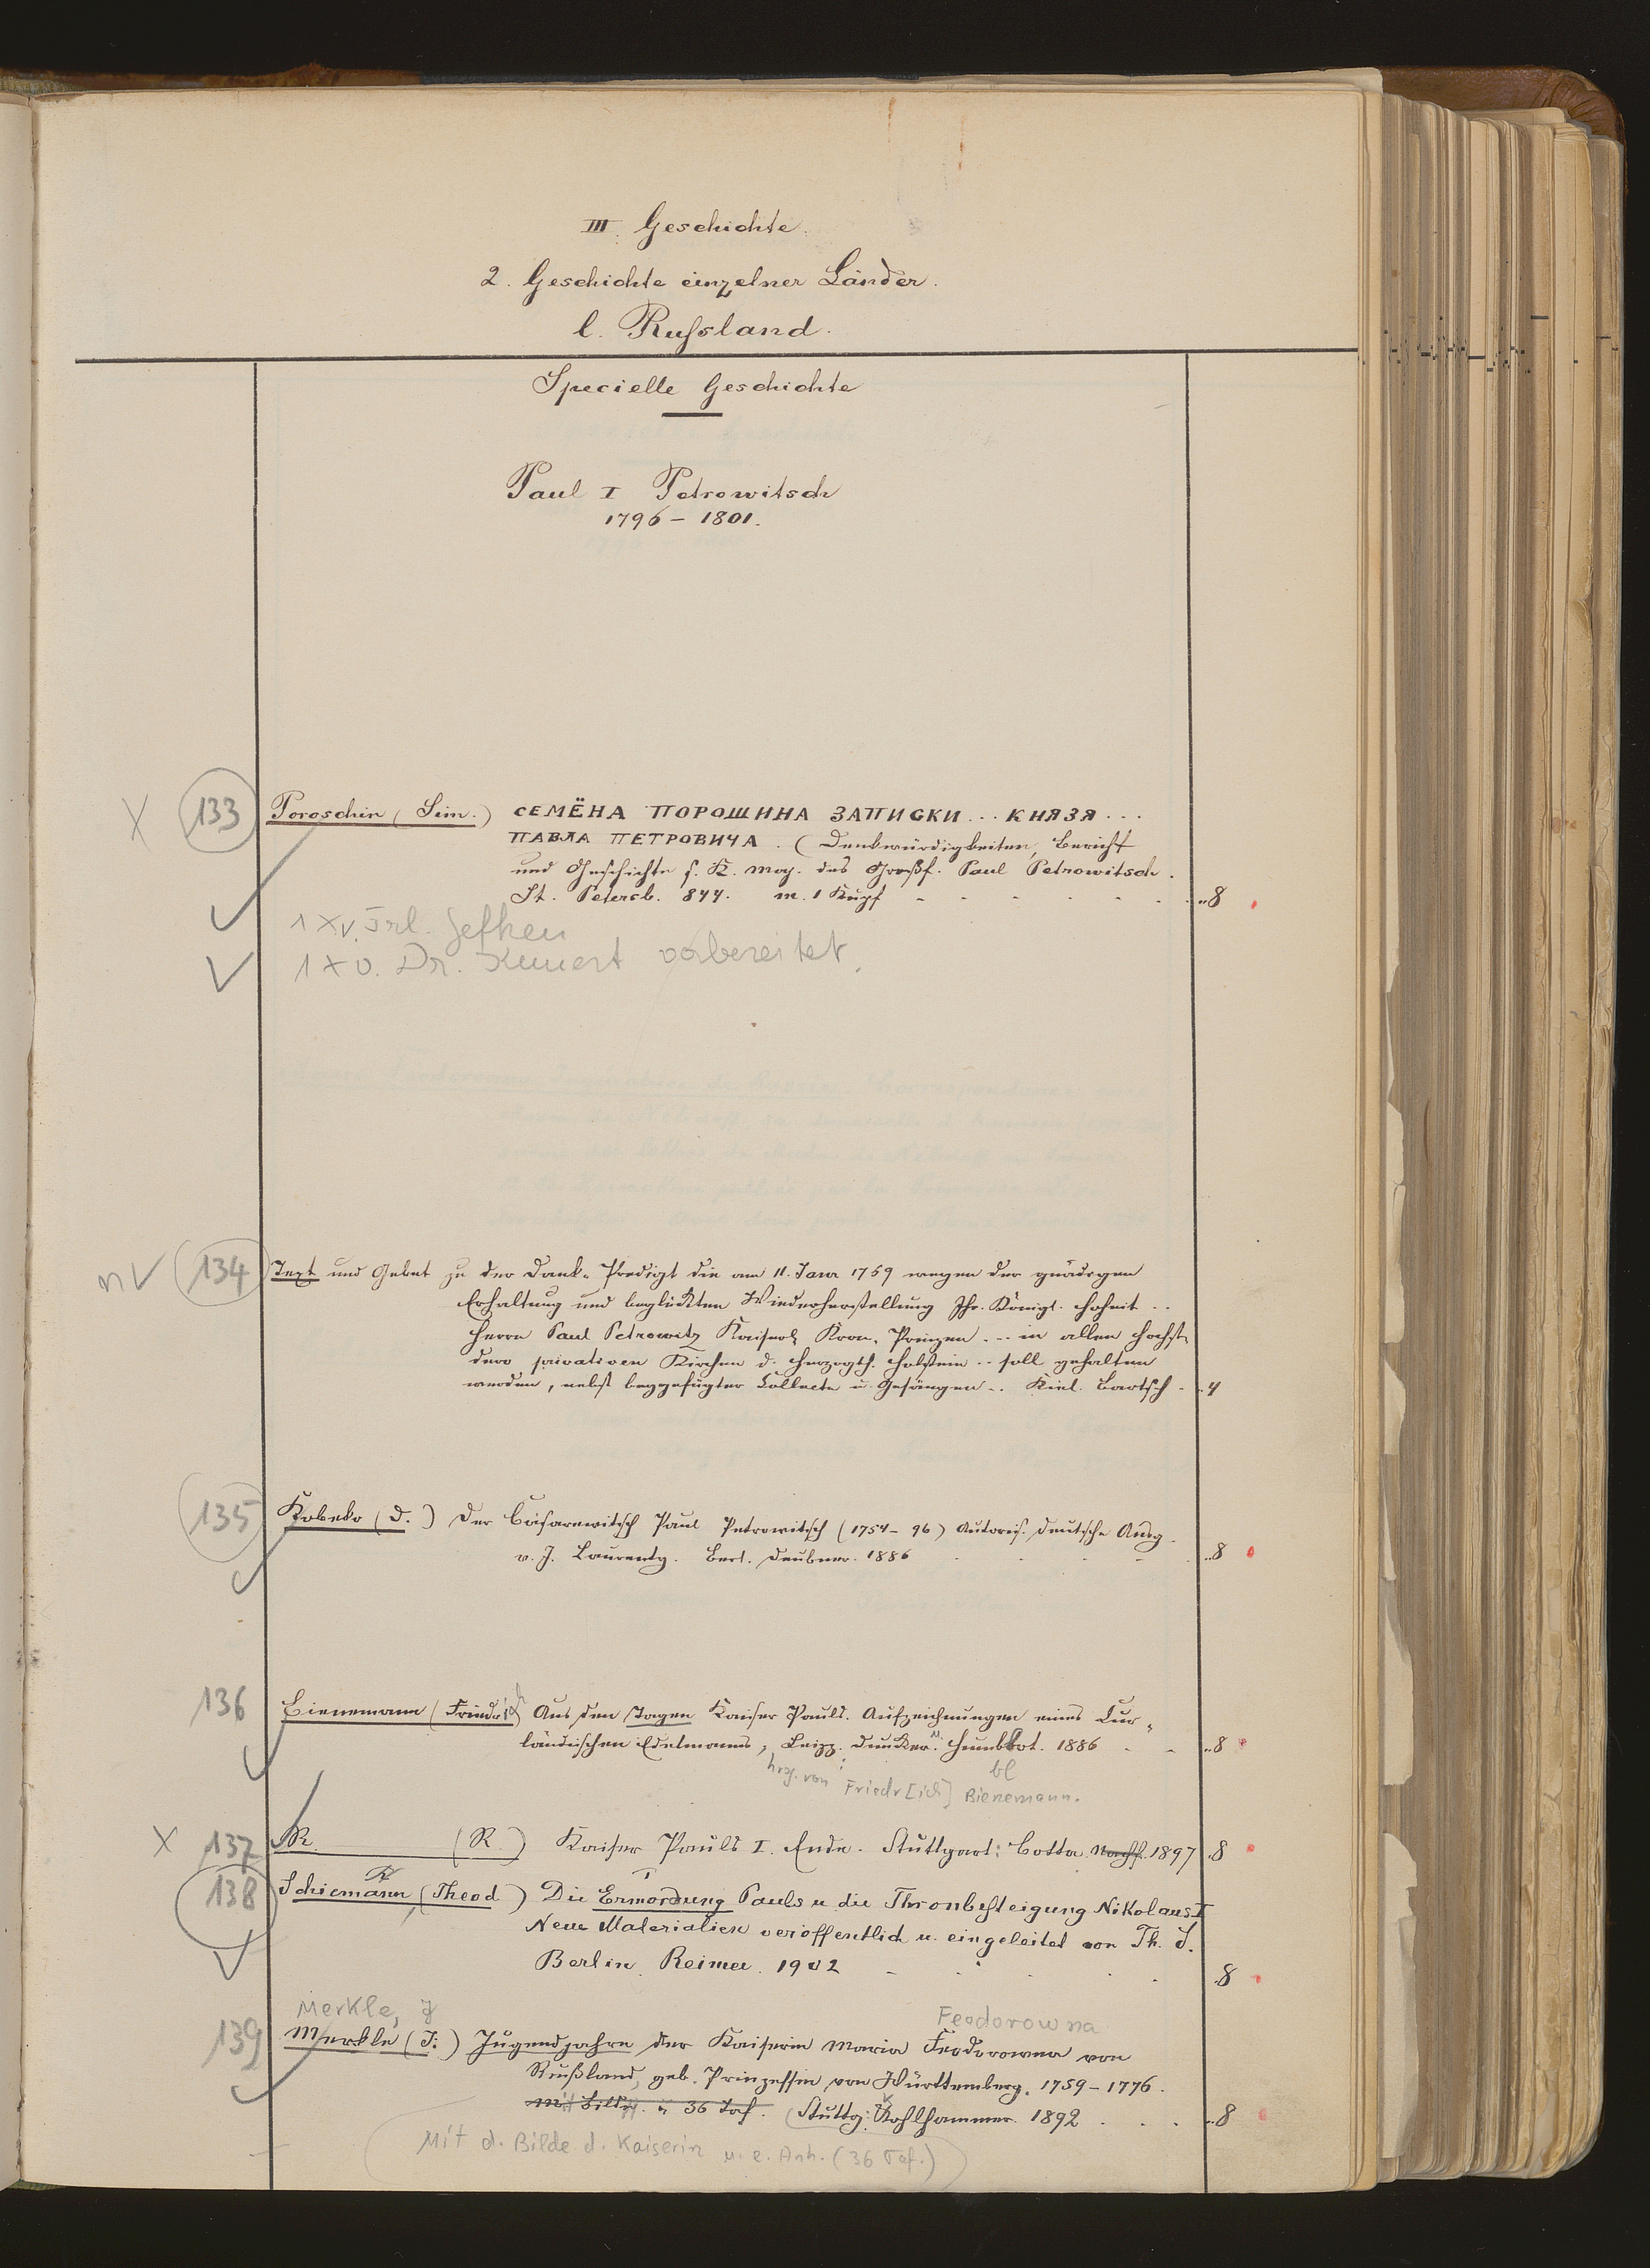 III. Geschichte.
2. Geschichte einzelner Länder.
l. Russland.
Specielle Geschichte
Paul I Petrowitsch
1796 – 1801.
X 133 Poroschin (Sim.) СЕМЁНА ПОРОШИНА ЗАПИСКИ... КНЯЗЯ...
ПАВЛА ПЕТРОВИЧА. (Denkwürdigkeiten, Bericht
und Geschichte s. K. Maj. des Großf. Paul Petrowitsch.
St. Petersb. 844. m. 1 Kupf - - - - - ..8
1 x v. Frl. Gefken
1 x v. Dr. vorbereitet.
n 134 Text und Gebet zu der Dank-Predigt die am 11. Janr 1759 wegen der gnädigen
Erhaltung und beglückten Wiederherstellung Ihr. Königl. Hoheit ..
Herrn Paul Petrowitz Kaiserl. Kron-Prinzen ... in allen Höchst-
dero privativen Kirchen d. Herzogth. Holstein .. soll gehalten
werden, nebst beygefügter Collecte u. Gesängen .. Kiel. Bartsch - .4
135 Kobeko (D.) Der Cäsarewitsch Paul Petrowitsch (1754–96) Autoris. deutsche Ausg.
v. J. Laurenty. Berl. Deubner. 1886 - - - ..8
136 Bienemann (Friedrich) Aus den Tagen Kaiser Pauls. Aufzeichnungen eines Cur-
ländischen Edelmanns, Leipz. Duncker u. Humblot. 1886 - - ..8
hrg. von Friedr[ich] Bienemann. bl
X 137 R. (R.) Kaiser Pauls I. Ende. Stuttgart: Cotta Nachf. 1897 .8
138 Schiemann (Theod) Die Ermordung Pauls I u. die Thronbesteigung Nikolaus I
Neue Materialien veröffentlich u. eingeleitet von Th. S.
Berlin. Reimer. 1902 - - - - .8
Merkle, J Feodorowna
139 Merkle (J.) Jugendjahre der Kaiserin Maria Feodorowna von
Rußland, geb. Prinzessin von Württemberg. 1759–1776.
Mit Bildn. u. 36 Taf. Stuttg: Kohlhammer. 1892 . . . ..8
Mit d. Bilde d. Kaiserin u. e. Anh. (36 Taf.)